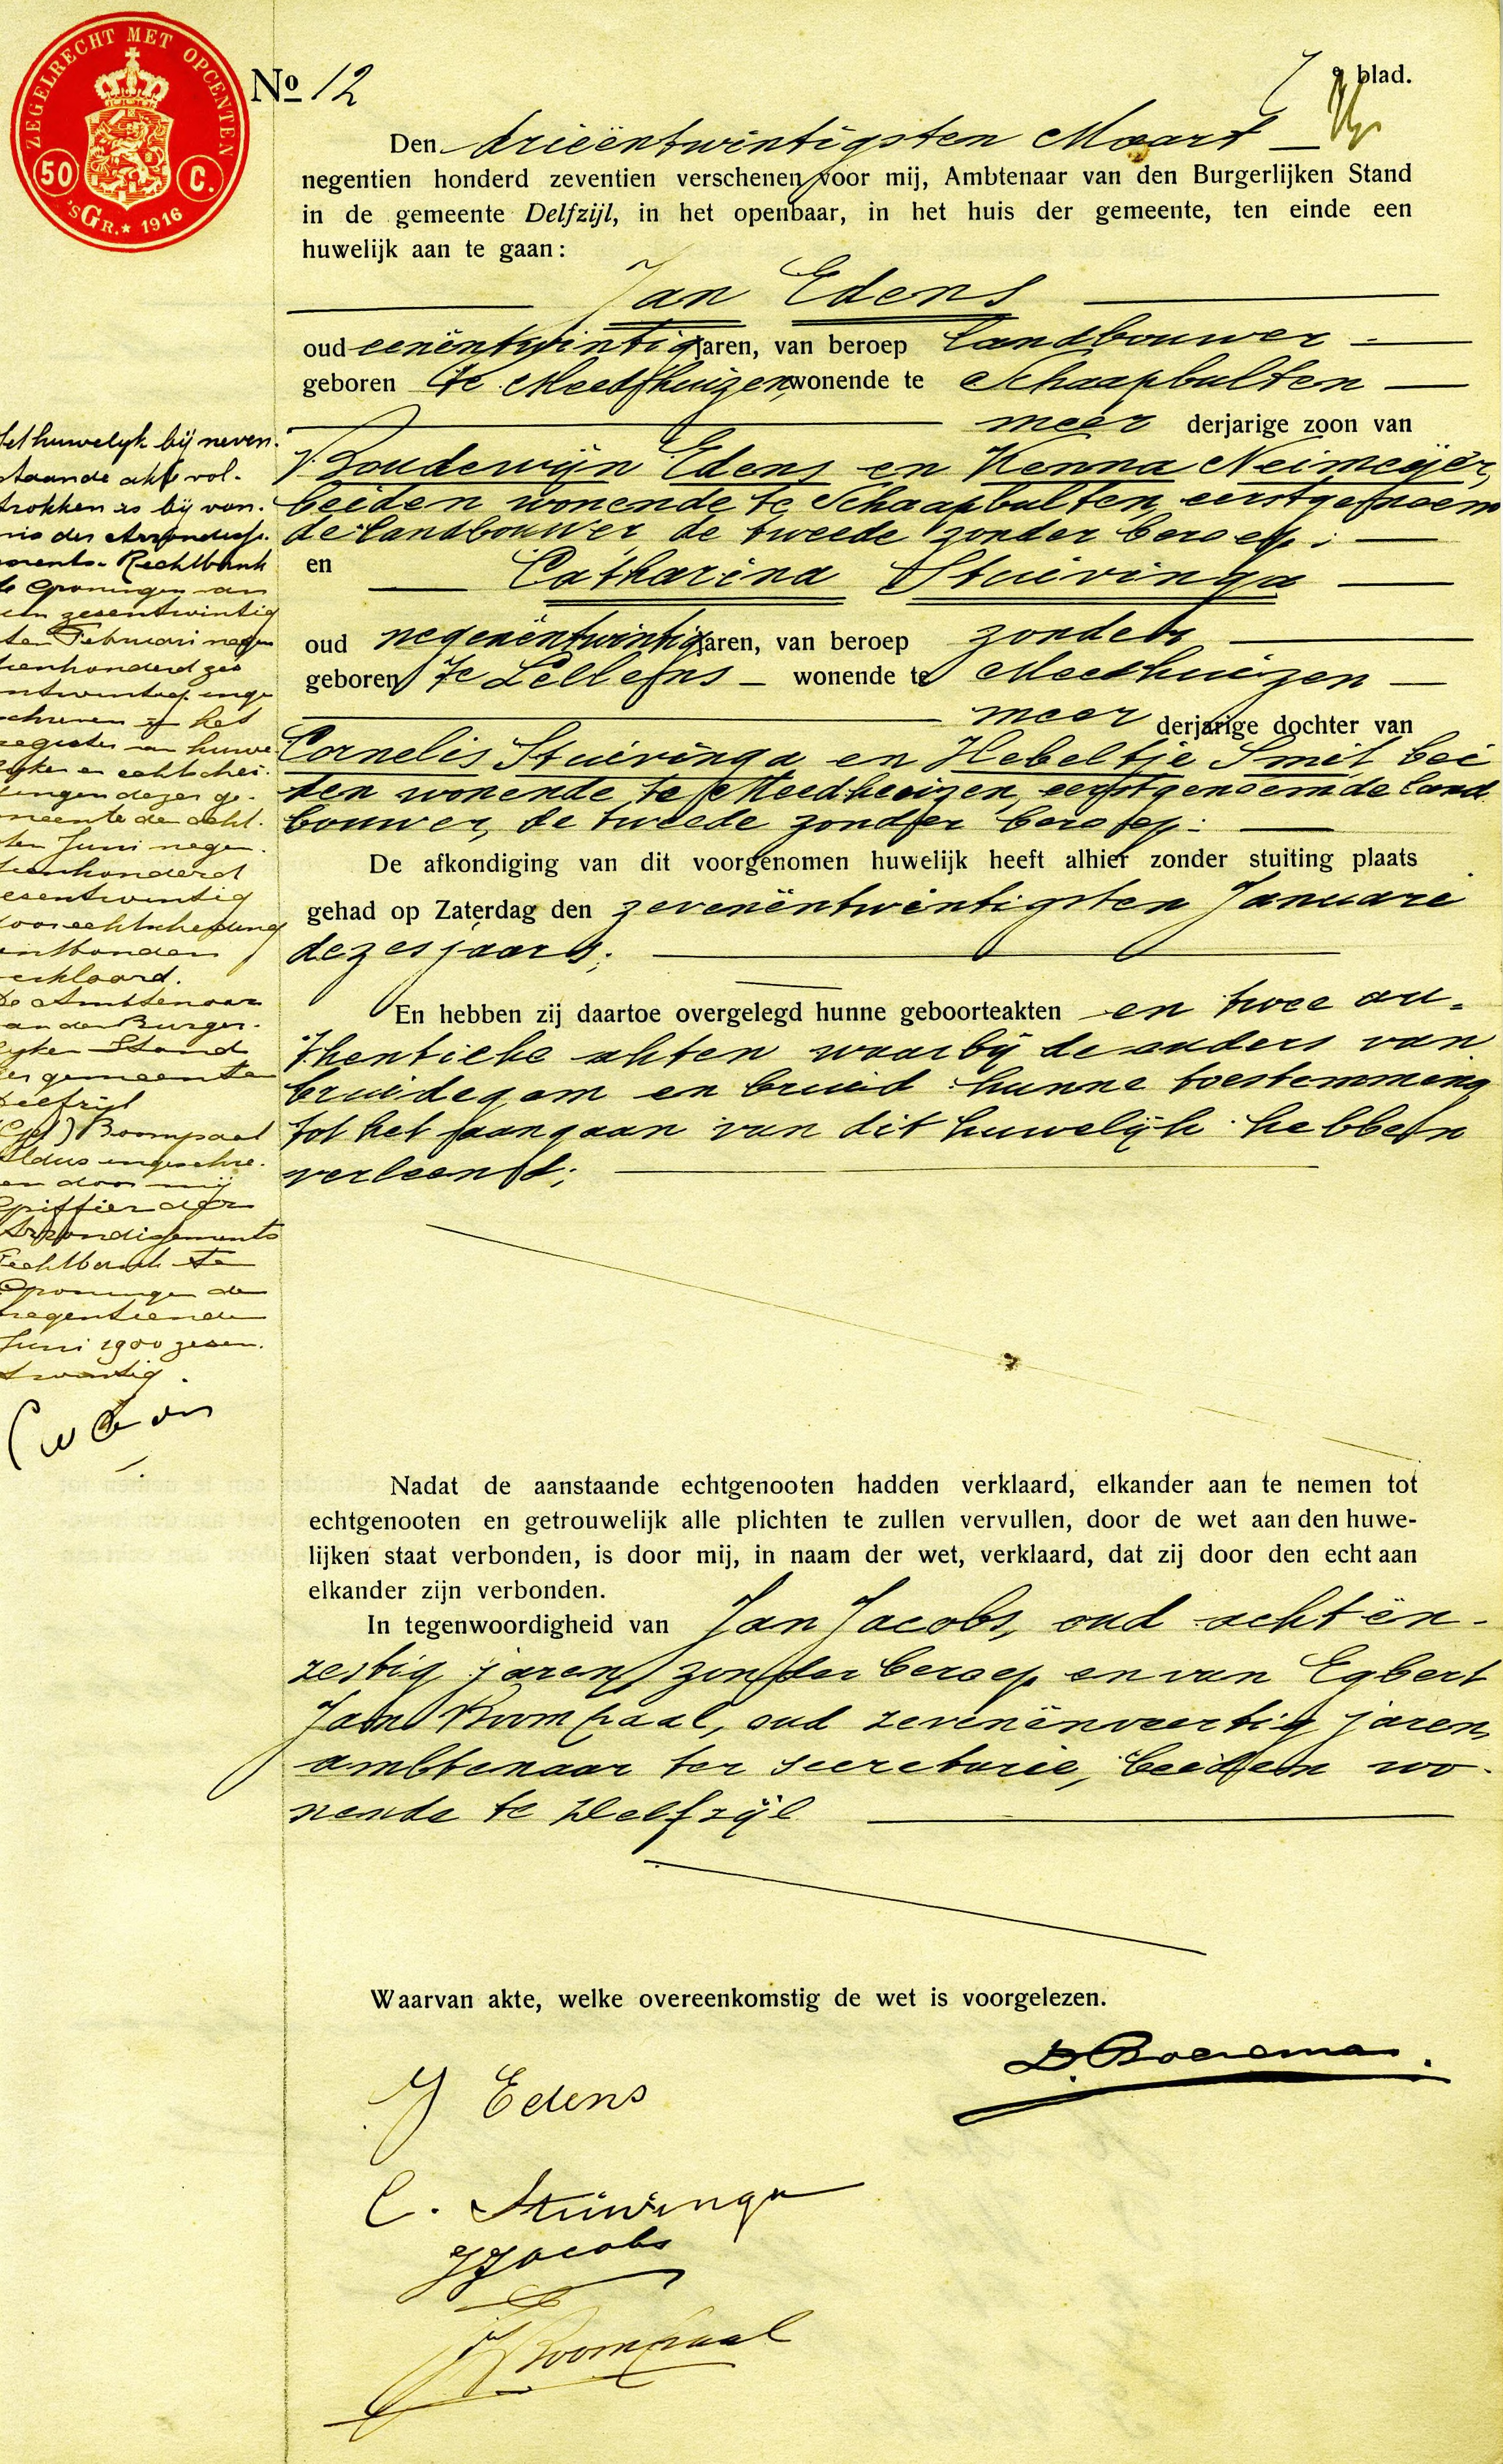 ZEGELRECHT MET OPCENTEN
50 C.
'S GR. ★ 1916
No 12
7e blad.
Den drieëntwintigsten Maart
negentien honderd zeventien verschenen voor mij, Ambtenaar van den Burgerlijken Stand
in de gemeente Delfzijl, in het openbaar, in het huis der gemeente, ten einde een
huwelijk aan te gaan:
Jan Edens
oud eenëntwintig jaren, van beroep landbouwer
geboren te Meedhuizen, wonende te Schaapbulten
meer derjarige zoon van
Boudewijn Edens en Kenna Neimeijer,
beiden wonende te Schaapbulten, eerstgenoem
de landbouwer, de tweede zonder beroep;
en Catharina Stuivinga
oud negenëntwintig jaren, van beroep zonder
geboren te Lellens wonende te Meedhuizen
meer derjarige dochter van
Cornelis Stuivinga en Hebeltje Smit, bei
den wonende te Meedhuizen, eerstgenoemde land
bouwer, de tweede zonder beroep:
De afkondiging van dit voorgenomen huwelijk heeft alhier zonder stuiting plaats
gehad op Zaterdag den zevenëntwintigsten Januari
dezes jaars;
En hebben zij daartoe overgelegd hunne geboorteakten en twee au-
thentieke akten waarbij de ouders van
bruidegom en bruid hunne toestemming
tot het aangaan van dit huwelijk hebben
verleend;
Nadat de aanstaande echtgenooten hadden verklaard, elkander aan te nemen tot
echtgenooten en getrouwelijk alle plichten te zullen vervullen, door de wet aan den huwe-
lijken staat verbonden, is door mij, in naam der wet, verklaard, dat zij door den echt aan
elkander zijn verbonden.
In tegenwoordigheid van Jan Jacobs, oud achtën-
zestig jaren, zonder beroep en van Egbert
Jan Boompaal, oud zevenënveertig jaren,
ambtenaar ter secretarie, beiden wo-
nende te Delfzijl
Waarvan akte, welke overeenkomstig de wet is voorgelezen.
D. Boerema.
J Edens
C. Stuivinga
J Jacobs
EJ Boompaal
Het huwelyk bij neven-
staande akte vol-
trokken is bij von-
nis der Arrondisse-
ments-Rechtbank
te Groningen van
den zesentwintig
sten Februari negen
tienhonderd zes
entwintig inge
schreven in het
register van huwe
lyken en echtschei-
dingen dezer ge-
meente den acht-
sten Juni negen-
tienhonderd
zesentwintig
door echtscheiding
ontbonden
verklaard.
De Ambtenaar
van den Burger-
lyken Stand
der gemeente
Delfzijl
(Get) Boompaal
Aldus ingeschre-
ven door mij
Griffier der
Arrondissements
Rechtbank te
Groningen den
negentienden
Juni 1900 zesen-
twintig.